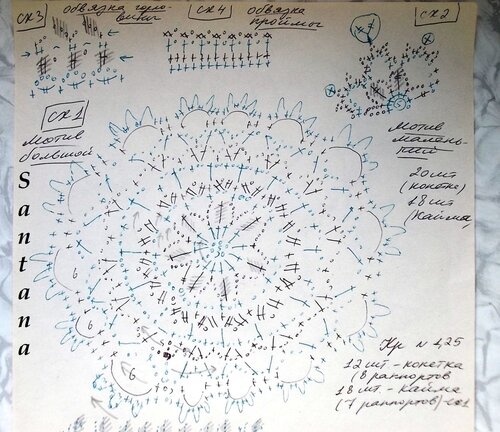 сх3 обвязка горло-
вины
сх4 обвязка
проймы
сх2
сх1
мотив
большой
Santana
мотив
малень-
кий
20 шт
(кокетка)
18 шт
(кайма)
6
6
6
Кр № 1,25
12 шт - кокетка
(8 раппортов
18 шт. - кайма
(7 раппортов)